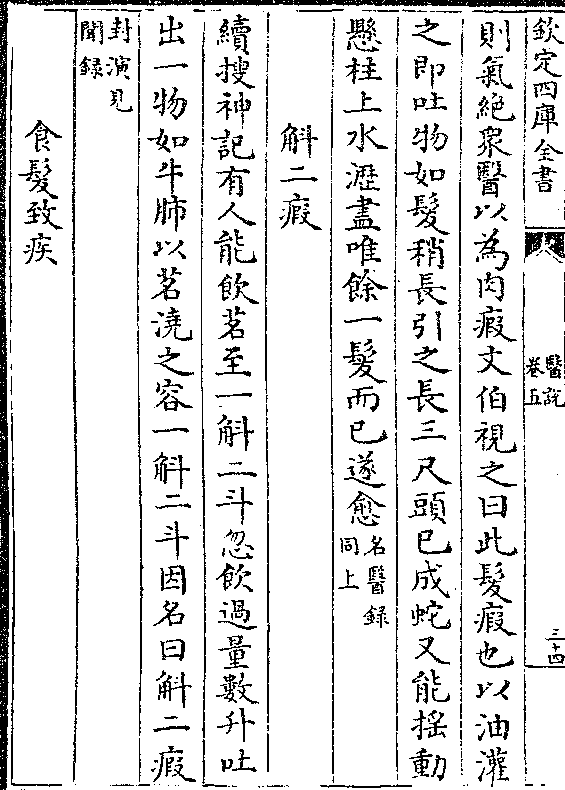 欽定四庫全書
醫說
卷五
三十四
則氣絶衆醫以為肉瘕文伯視之曰此髮瘕也以油灌
之即吐物如髮稍長引之長三尺頭已成蛇又能揺動
懸柱上水瀝盡唯餘一髮而已遂愈名醫録
同上
斛二瘕
續搜神記有人能飲茗至一斛二斗忽飲過量數升吐
出一物如牛肺以茗澆之容一斛二斗因名曰斛二瘕
封演見
聞録
食髮致疾